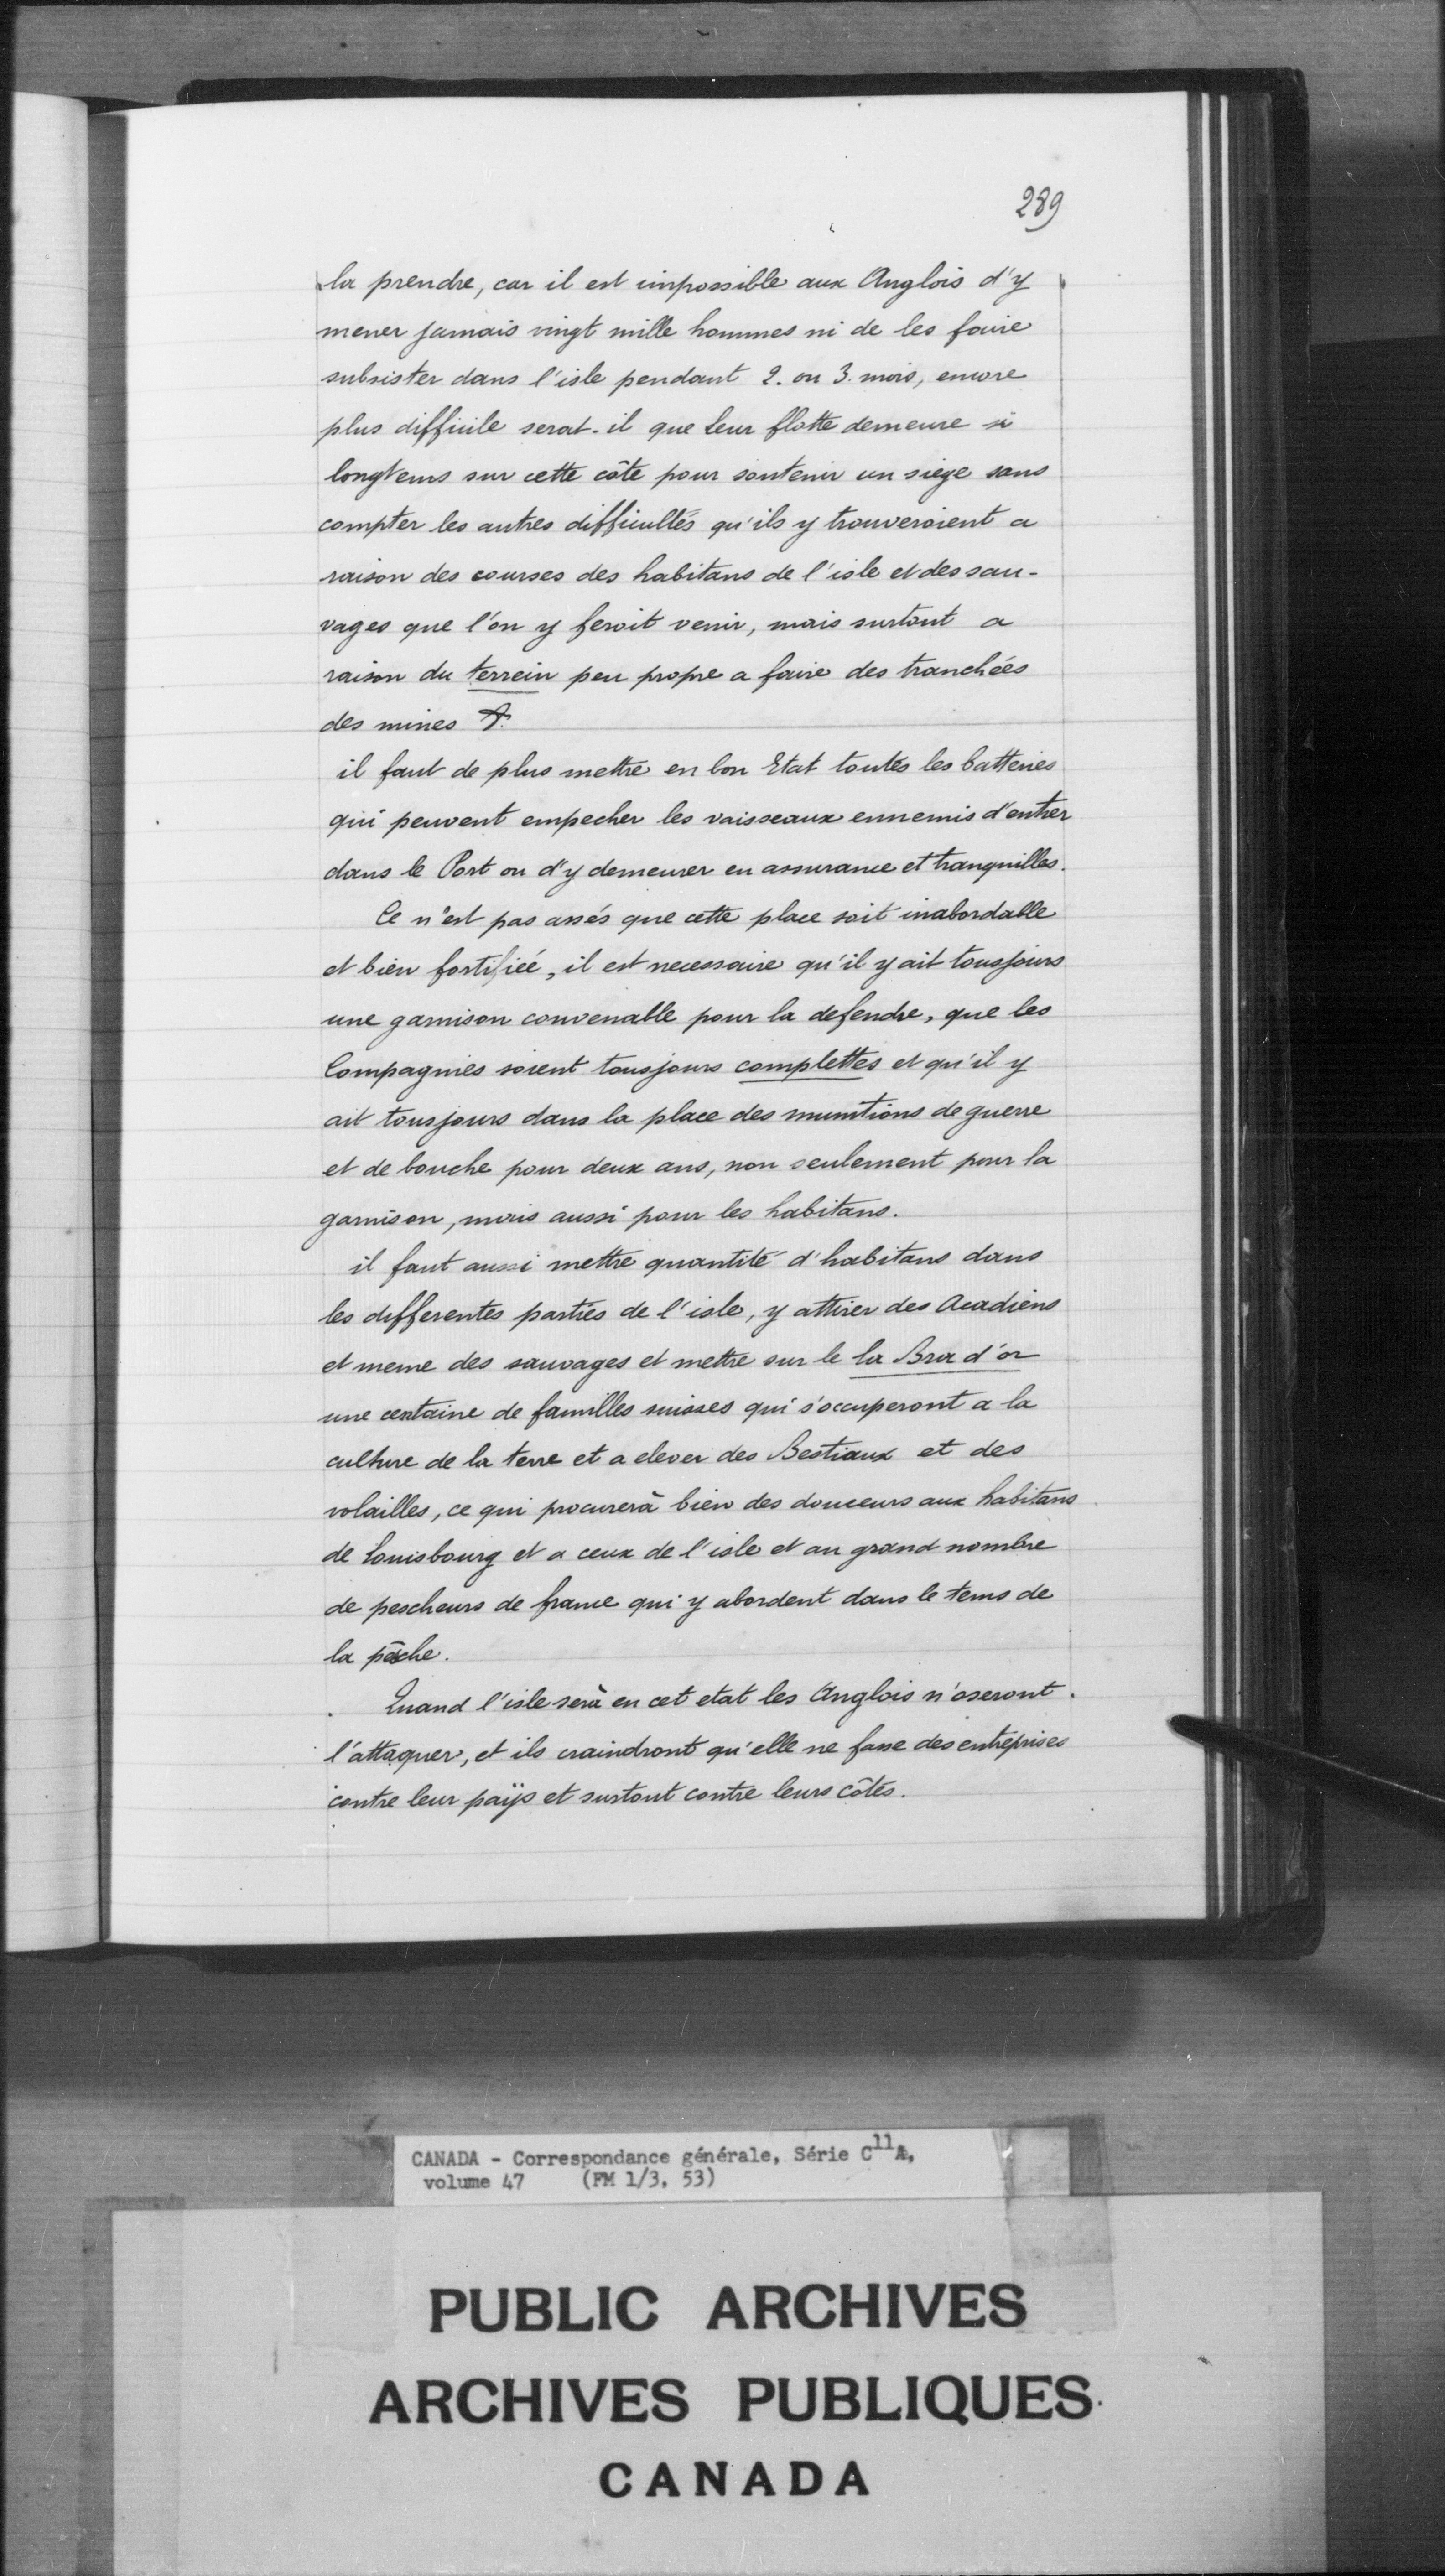 289
la prendre, car il est impossible aux Anglois d'y
mener jamais vingt mille hommes ni de les faire
subsister dans l'isle pendant 2. ou 3. mois, encore
plus difficile serat-il que leur flotte demeure si
longtems sur cette côte pour soutenir un siege sans
compter les autres difficultés qu'ils y trouveroient a
raison des courses des habitans de l'isle et des sau-
vages que l'on y feroit venir, mais surtout a
raison du terrein peu propre a faire des tranchées
des mines &.
il faut de plus mettre en bon Etat toutes les batteries
qui peuvent empecher les vaisseaux ennemis d'entrer
dans le Port ou d'y demeurer en assurance et tranquilles.
Ce n'est pas assés que cette place soit inabordable
et bien fortifiée, il est necessaire qu'il y ait tousjours
une garnison convenable pour la defendre, que les
Compagnies soient tousjours complettes et qu'il y
ait tousjours dans la place des munitions de guerre
et de bouche pour deux ans, non seulement pour la
garnison, mais aussi pour les habitans.
il faut aussi mettre quantité d'habitans dans
les differentes parties de l'isle, y attirer des Acadiens
et meme des sauvages et mettre sur le la Bra d'or
une centaine de familles suisses qui s'occuperont a la
culture de la terre et a elever des Bestiaux et des
volailles, ce qui procurerà bien des douceurs aux habitans
de Louisbourg et a ceux de l'isle et au grand nombre
de pescheurs de france qui y abordent dans le tems de
la pêche.
Quand l'isle serà en cet etat les Anglois n'oseront
l'attaquer, et ils craindront qu'elle ne fasse des entreprises
contre leur païs et surtout contre leurs côtes.
CANADA - Correspondance générale, Série C11A,
volume 47 (FM 1/3, 53)
PUBLIC ARCHIVES
ARCHIVES PUBLIQUES
CANADA